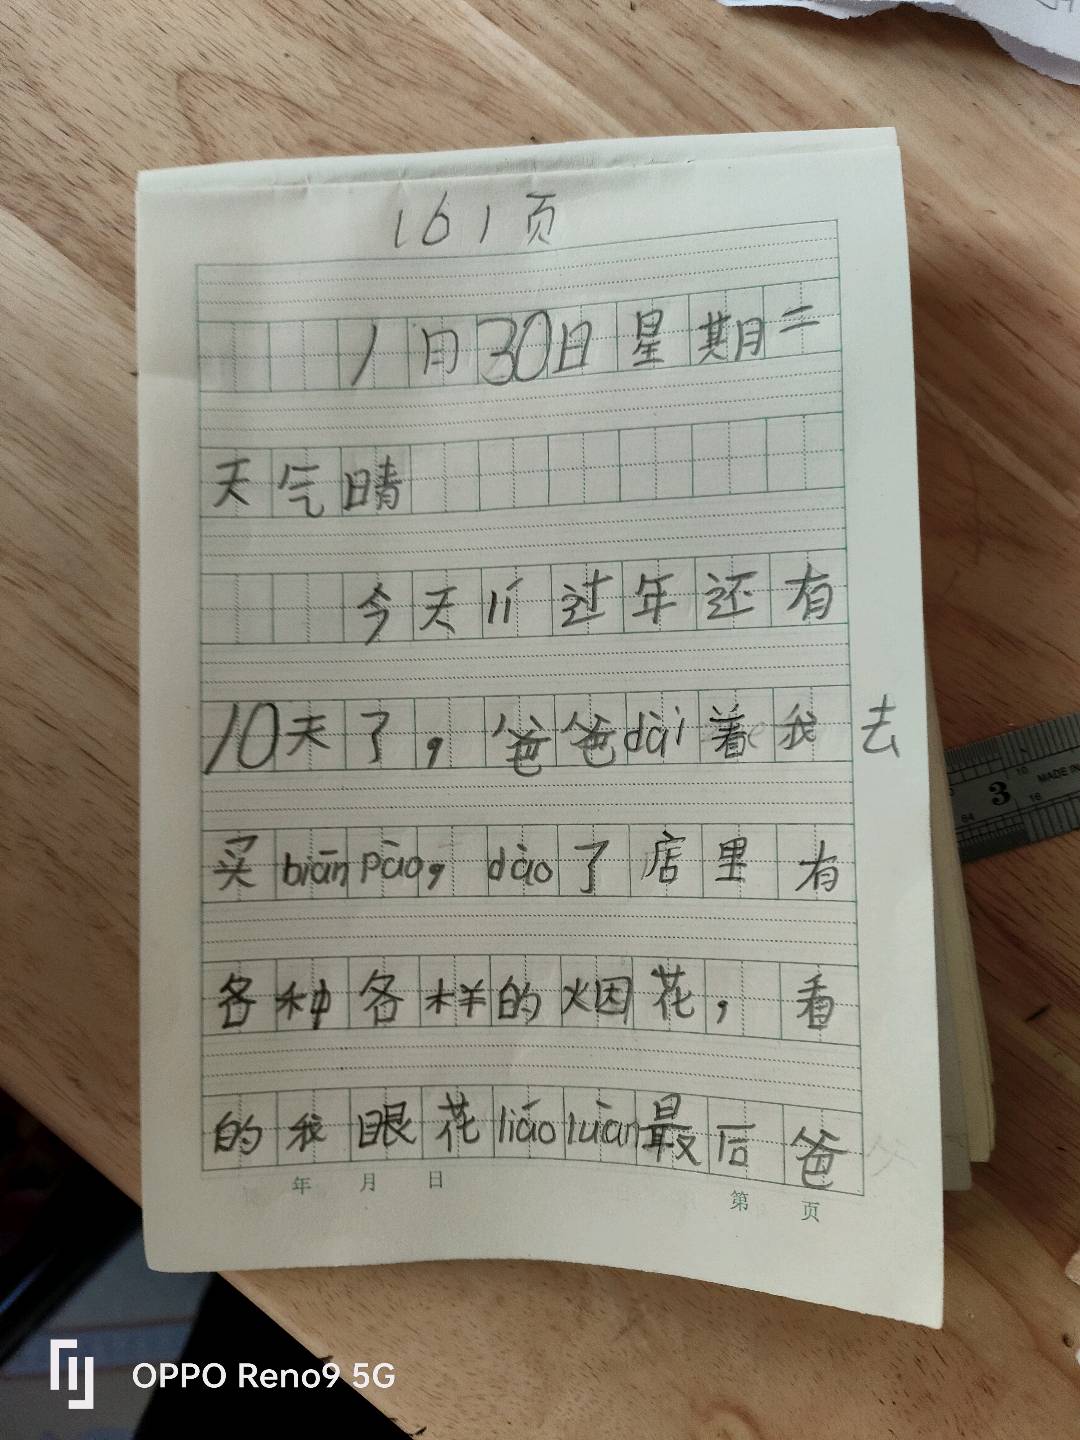 161页
1月30日星期二
天气晴
今天lí过年还有
10天了，爸爸dài着我去
买biān pào，dào了店里有
各种各样的烟花，看
的我眼花liáo luàn最后爸
年 月 日
第 页
3
MADE IN
OPPO Reno9 5G